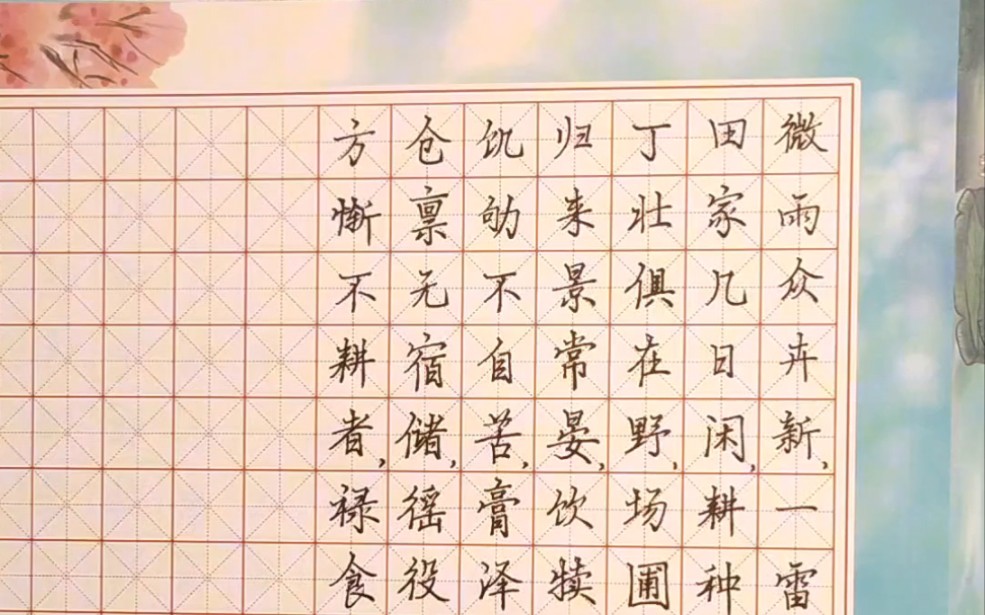 微雨众卉新,一雷
田家几日闲,耕种
丁壮俱在野,场圃
归来景常晏,饮犊
饥劬不自苦,膏泽
仓禀无宿储,徭役
方惭不耕者,禄食